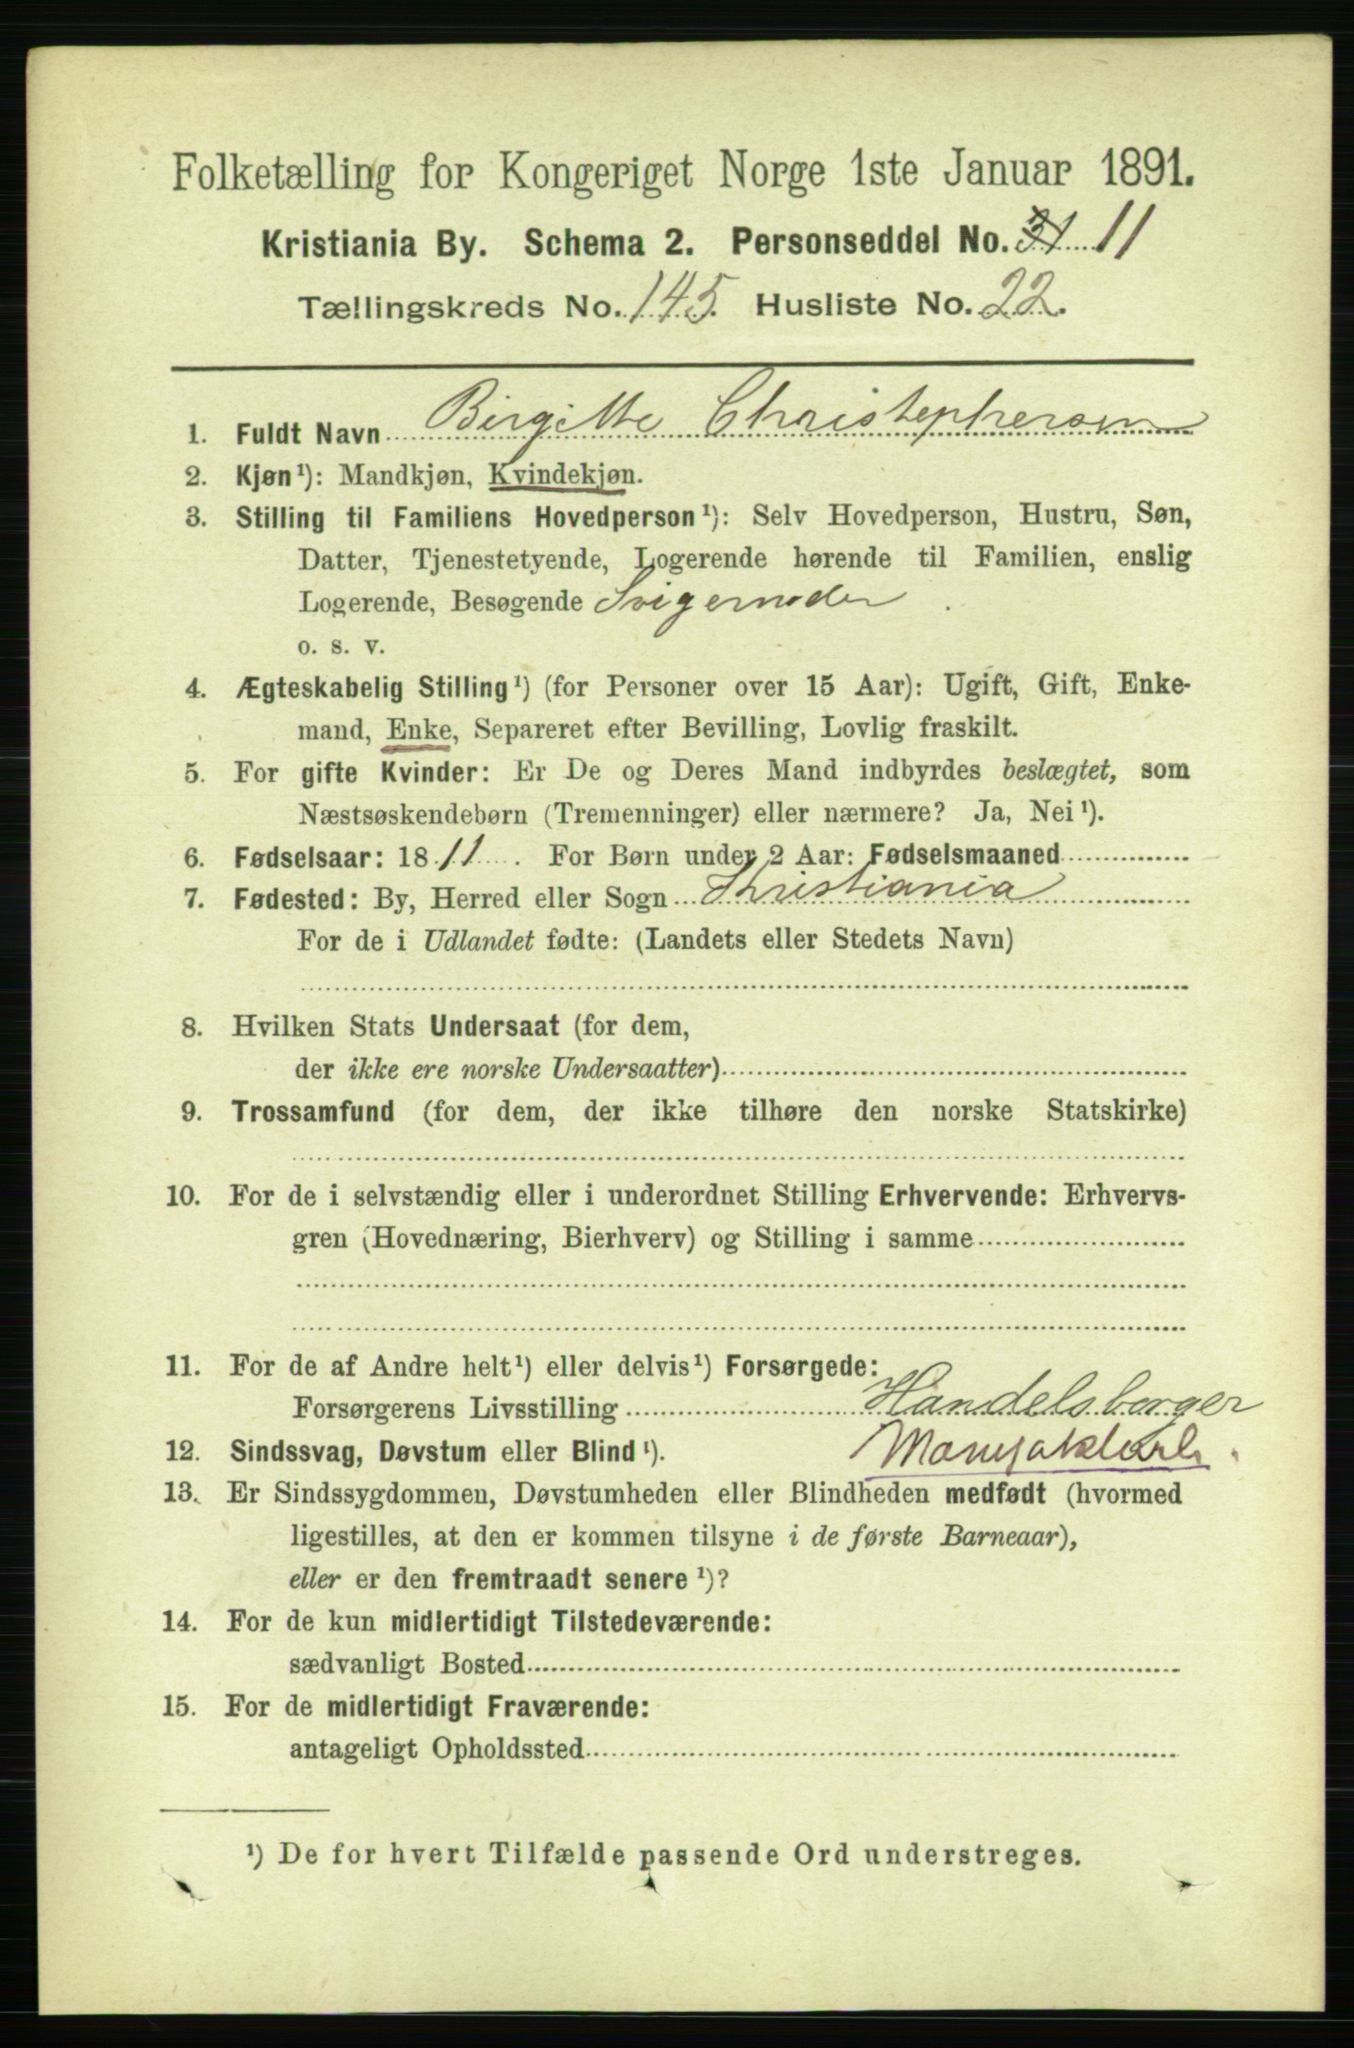 Folketælling for Kongeriget Norge 1ste Januar 1891.
Kristiania By. Schema 2. Personseddel No. 31 11
Tællingskreds No. 145. Husliste No. 22.
1. Fuldt Navn Birgitte Christephersen
2. Kjøn¹): Mandkjøn, Kvindekjøn.
3. Stilling til Familiens Hovedperson¹): Selv Hovedperson, Hustru, Søn,
Datter, Tjenestetyende, Logerende hørende til Familien, enslig
Logerende, Besøgende Svigermoder
o. s. v.
4. Ægteskabelig Stilling¹) (for Personer over 15 Aar): Ugift, Gift, Enke-
mand, Enke, Separeret efter Bevilling, Lovlig fraskilt.
5. For gifte Kvinder: Er De og Deres Mand indbyrdes beslægtet, som
Næstsøskendebørn (Tremenninger) eller nærmere? Ja, Nei¹).
6. Fødselsaar: 1811. For Børn under 2 Aar: Fødselsmaaned
7. Fødested: By, Herred eller Sogn Christiania
For de i Udlandet fødte: (Landets eller Stedets Navn)
8. Hvilken Stats Undersaat (for dem,
der ikke ere norske Undersaatter)
9. Trossamfund (for dem, der ikke tilhøre den norske Statskirke)
10. For de i selvstændig eller i underordnet Stilling Erhvervende: Erhvervs-
gren (Hovednæring, Bierhverv) og Stilling i samme
11. For de af Andre helt¹) eller delvis¹) Forsørgede:
Forsørgerens Livsstilling Handelsborger
12. Sindssvag, Døvstum eller Blind¹).
13. Er Sindssygdommen, Døvstumheden eller Blindheden medfødt (hvormed
ligestilles, at den er kommen tilsyne i de første Barneaar),
eller er den fremtraadt senere¹)?
14. For de kun midlertidigt Tilstedeværende:
sædvanligt Bosted
15. For de midlertidigt Fraværende:
antageligt Opholdssted
¹) De for hvert Tilfælde passende Ord understreges.